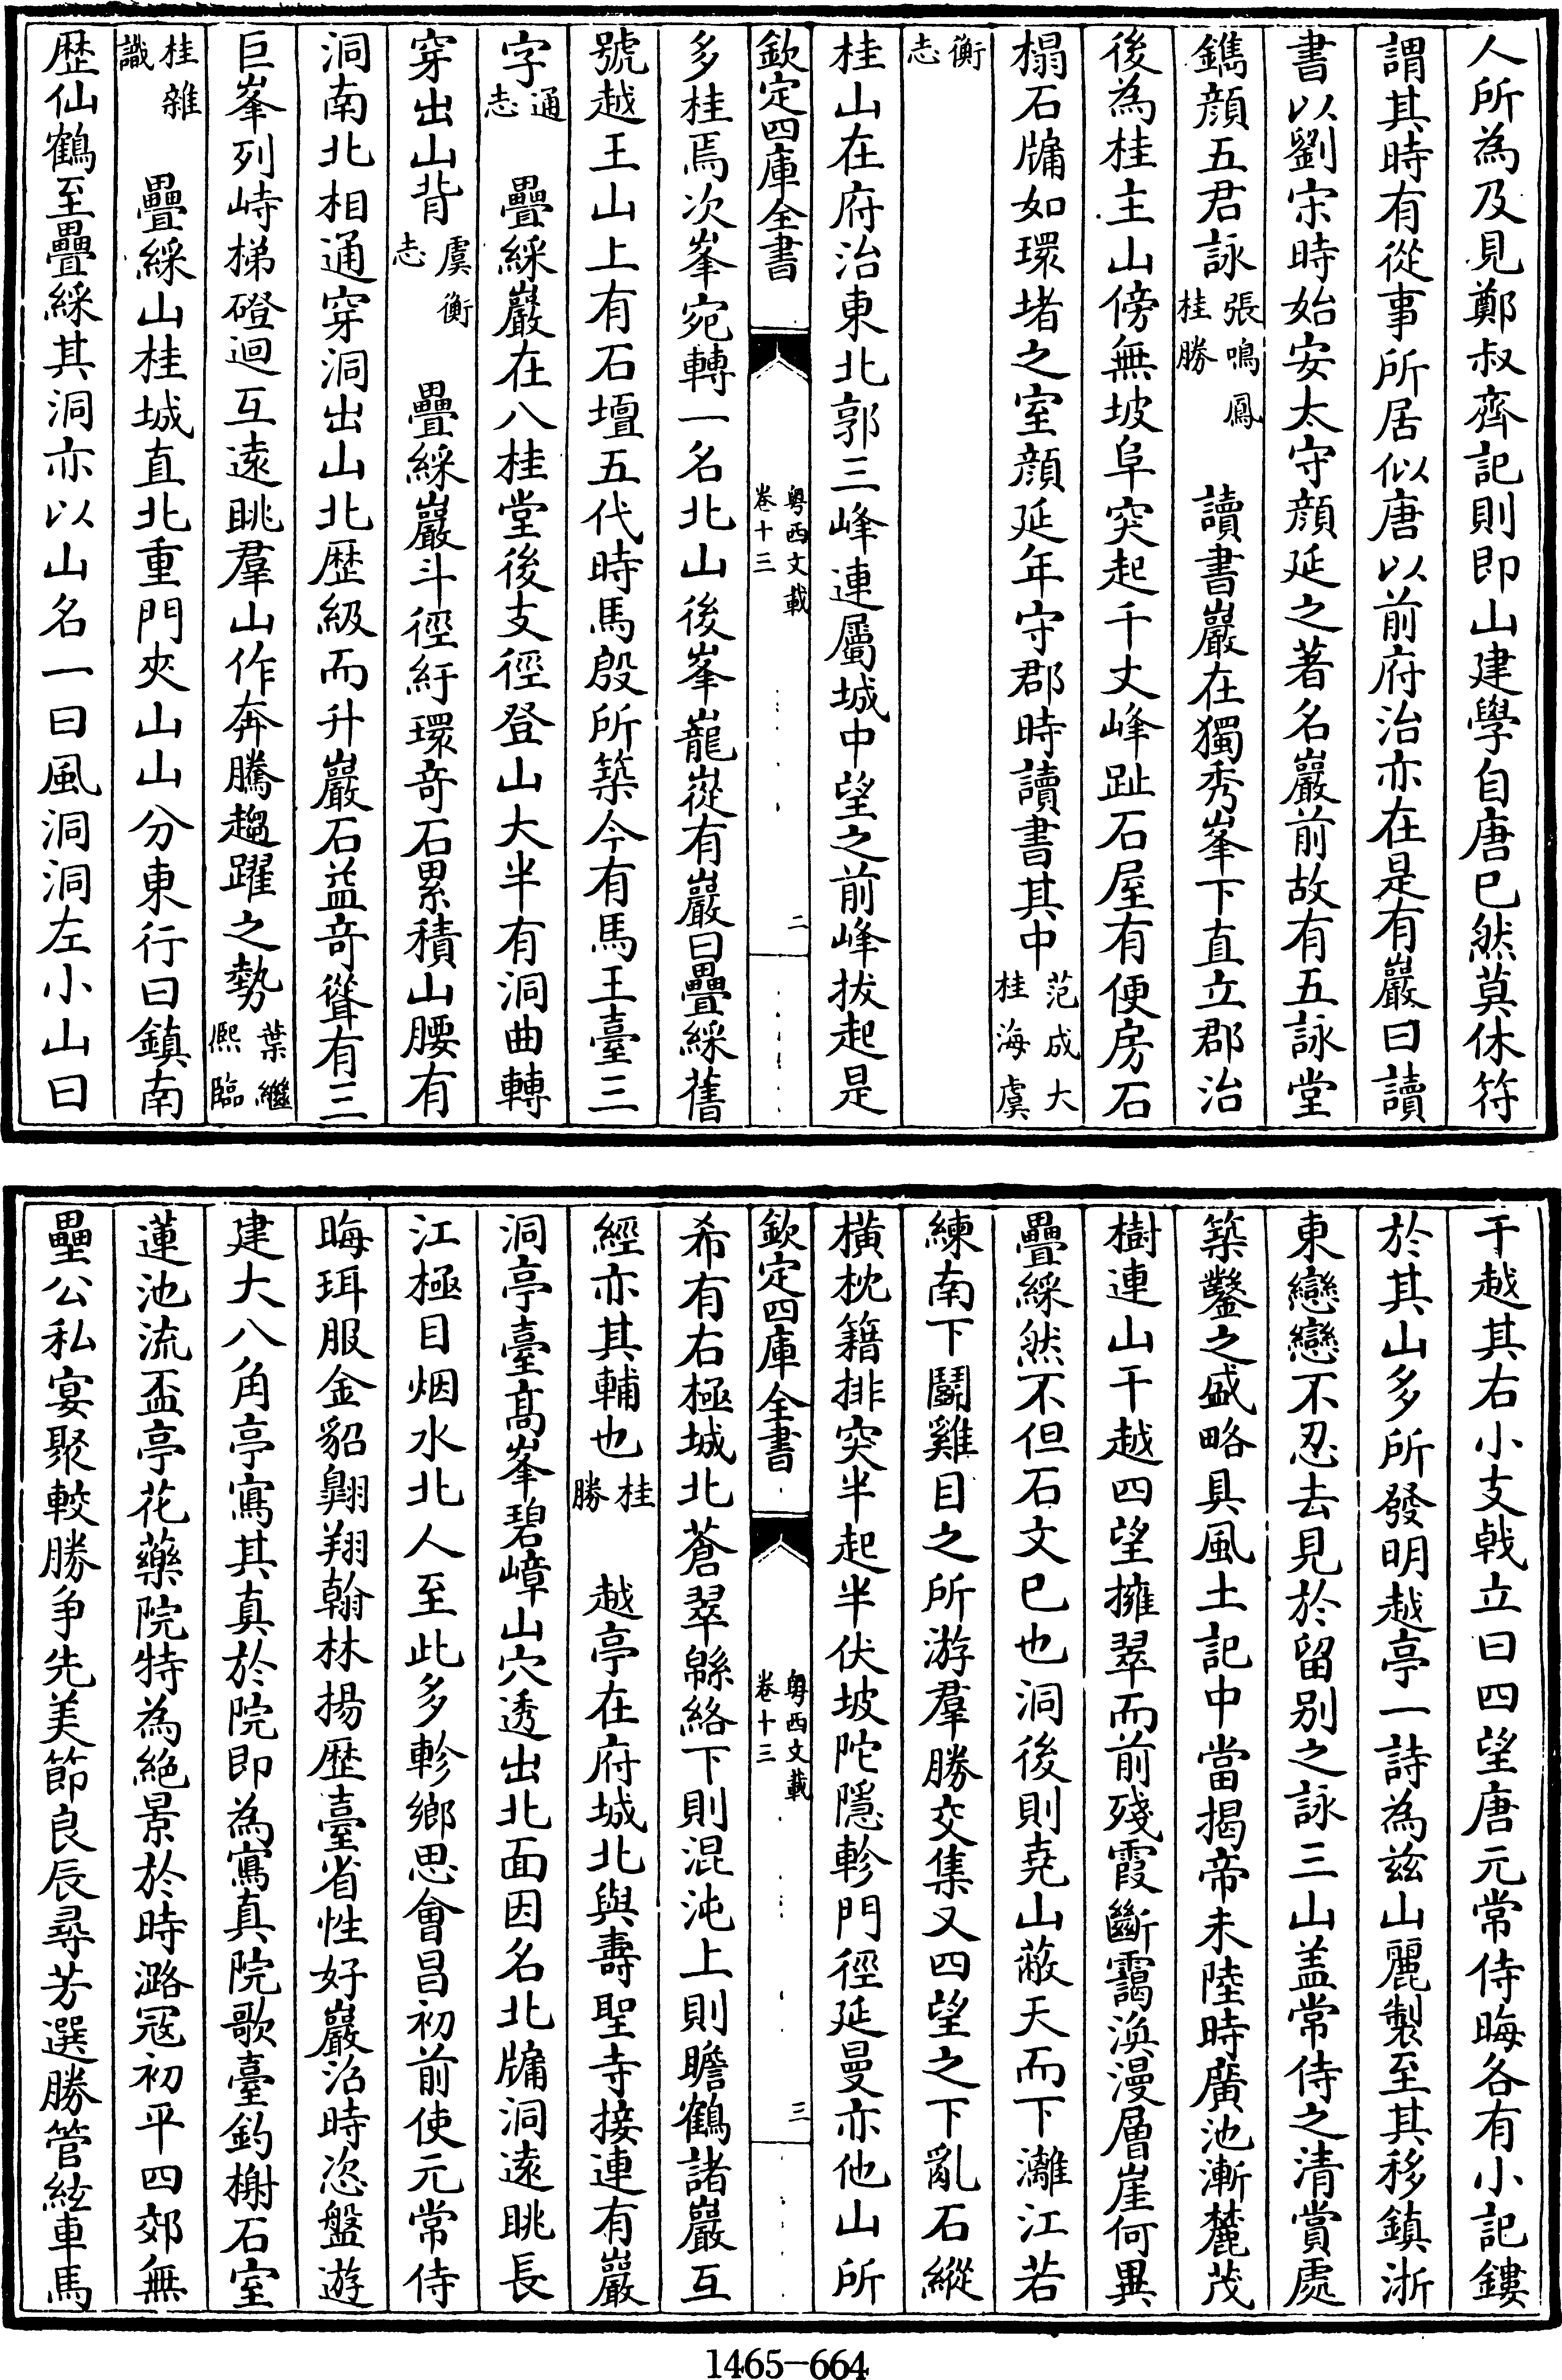 人所為及見鄭叔齊記則即山建學自唐已然莫休符
謂其時有從事所居似唐以前府治亦在是有巖曰讀
書以劉宋時始安太守顔延之著名巖前故有五詠堂
鐫顔五君詠張鳴鳳桂勝 讀書巖在獨秀峯下直立郡治
後為桂主山傍無坡阜突起千丈峰趾石屋有便房石
榻石牖如環堵之室顔延年守郡時讀書其中范成大桂海虞
衡志
桂山在府治東北郭三峰連屬城中望之前峰拔起是
欽定四庫全書 粤西文載卷十三 二
多桂焉次峯宛轉一名北山後峯巃嵸有巖曰疊綵舊
號越王山上有石壇五代時馬殷所築今有馬王臺三
字通志 疊綵巖在八桂堂後支徑登山大半有洞曲轉
穿出山背虞衡志 疊綵巖斗徑紆環竒石累積山腰有
洞南北相通穿洞出山北歴級而升巖石益竒聳有三
巨峯列峙梯磴迴互逺眺羣山作奔騰趨躍之勢葉繼熙臨
桂雜識 疊綵山桂城直北重門夾山山分東行曰鎮南
歴仙鶴至疊綵其洞亦以山名一曰風洞洞左小山曰
干越其右小支㦸立曰四望唐元常侍晦各有小記鏤
於其山多所發明越亭一詩為兹山麗製至其移鎮浙
東戀戀不忍去見於留别之詠三山盖常侍之清賞處
築鑿之盛略具風土記中當揭帝未陸時廣池漸麓茂
樹連山干越四望擁翠而前殘霞斷靄渙漫層崖何異
疊綵然不但石文已也洞後則堯山蔽天而下灕江若
練南下鬭雞目之所游羣勝交集又四望之下亂石縱
橫枕籍排突半起半伏坡陀隱軫門徑延曼亦他山所
欽定四庫全書 粤西文載卷十三 三
希有右極城北蒼翠緜絡下則混沌上則瞻鶴諸巖互
經亦其輔也桂勝 越亭在府城北與夀聖寺接連有巖
洞亭臺髙峯碧嶂山穴透出北面因名北牖洞逺眺長
江極目烟水北人至此多軫鄉思㑹昌初前使元常侍
晦珥服金貂翺翔翰林揚歴臺省性好巖沿時恣盤遊
建大八角亭寫其真於院即為寫真院歌臺釣榭石室
蓮池流盃亭花藥院特為絶景於時潞冦初平四郊無
壘公私宴聚較勝争先美節良辰尋芳選勝管絃車馬
1465-664